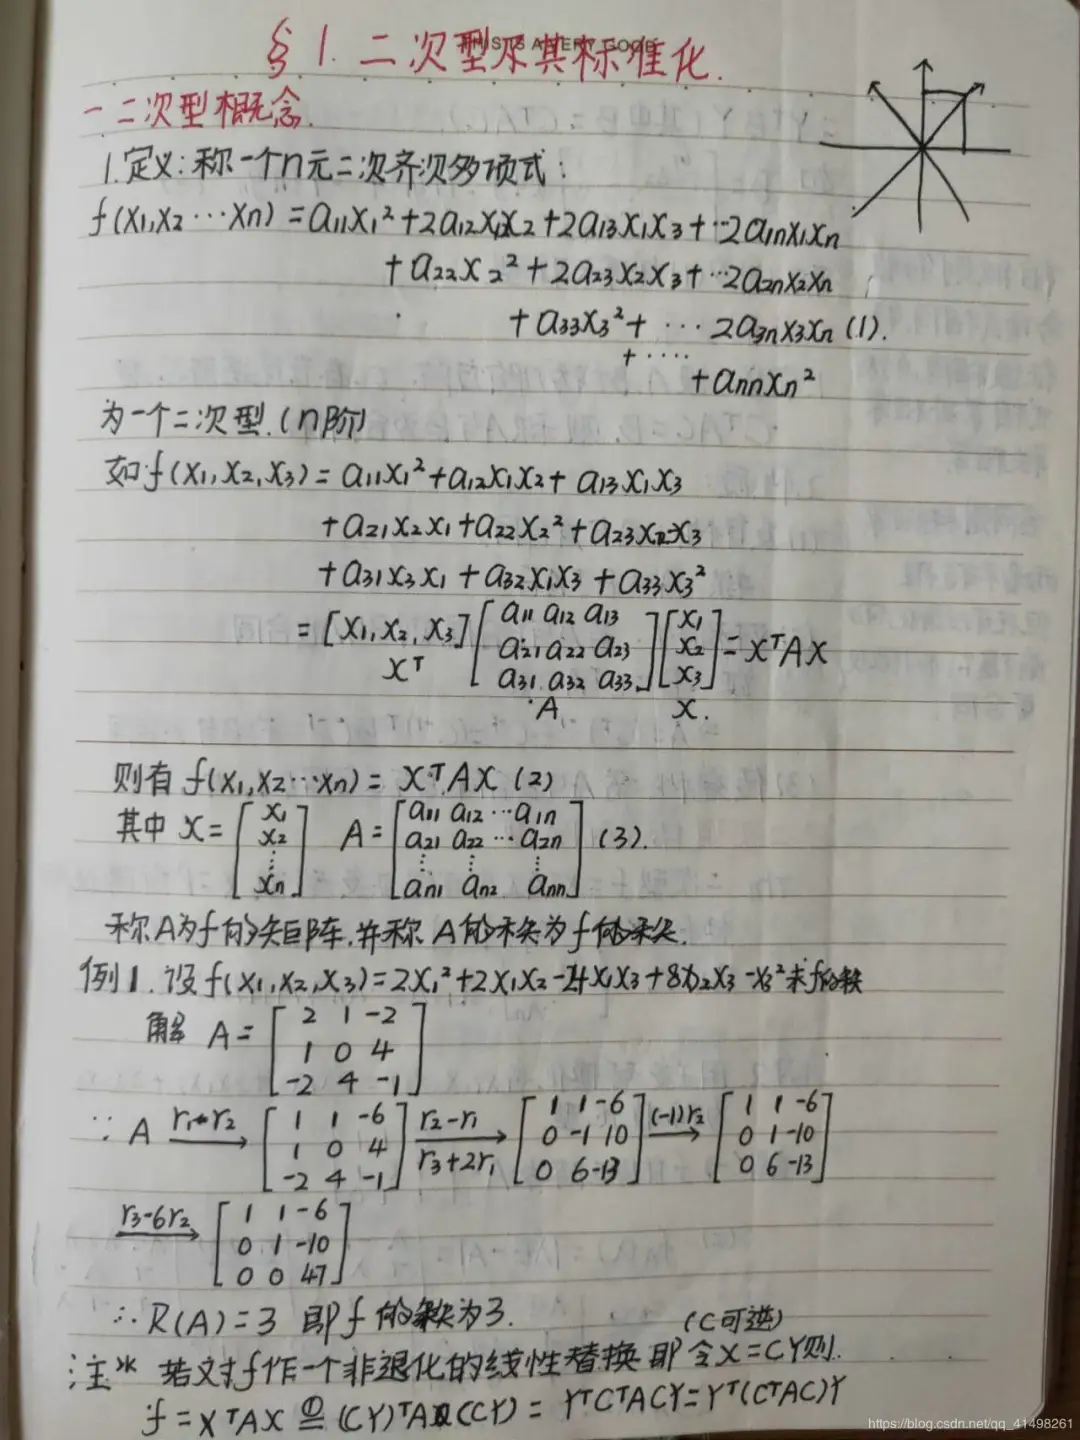 §1. 二次型及其标准化.
一 二次型概念.
1.定义:称一个n元二次齐次多项式:
f(x₁,x₂⋯xn) = a₁₁x₁²+2a₁₂x₁x₂+2a₁₃x₁x₃+⋯2a₁nx₁xn
+a₂₂x₂²+2a₂₃x₂x₃+⋯2a₂nx₂xn
+a₃₃x₃²+ ⋯ 2a₃nx₃xn (1).
+ ⋯
+annxn²
为一个二次型.(n阶)
如f(x₁,x₂,x₃) = a₁₁x₁²+a₁₂x₁x₂+ a₁₃x₁x₃
+a₂₁x₂x₁+a₂₂x₂²+a₂₃x₂x₃
+a₃₁x₃x₁ + a₃₂x₁x₃ + a₃₃x₃²
= [x₁,x₂,x₃] [a₁₁ a₁₂ a₁₃ a₂₁ a₂₂ a₂₃ a₃₁ a₃₂ a₃₃] [x₁ x₂ x₃] = xᵀAx
xᵀ A x.
则有 f(x₁,x₂⋯xn) = xᵀAx (2)
其中 x= [x₁ x₂ ⋮ xn] A= [a₁₁ a₁₂ ⋯a₁n a₂₁ a₂₂ ⋯a₂n ⋮ ⋮ ⋮ an₁ an₂ ann] (3).
称A为f的矩阵,并称 A的秩为f的秩.
例1.设f(x₁,x₂,x₃)=2x₁²+2x₁x₂-4x₁x₃+8x₂x₃-x₃²求f的秩
解 A= [2 1 -2 1 0 4 -2 4 -1]
∵ A r₁-r₂ → [1 1 -6 1 0 4 -2 4 -1] r₂-r₁ r₃+2r₁ → [1 1 -6 0 -1 10 0 6 -13] (-1)r₂ → [1 1 -6 0 1 -10 0 6 -13]
r₃-6r₂ → [1 1 -6 0 1 -10 0 0 47]
∴R(A)=3 即f的秩为3.
(C可逆)
注* 若对f作一个非退化的线性替换即令x=CY则.
f=xᵀAx ①= (CY)ᵀA(CY) = YᵀCᵀACY=Yᵀ(CᵀAC)Y
https://blog.csdn.net/qq_41498261